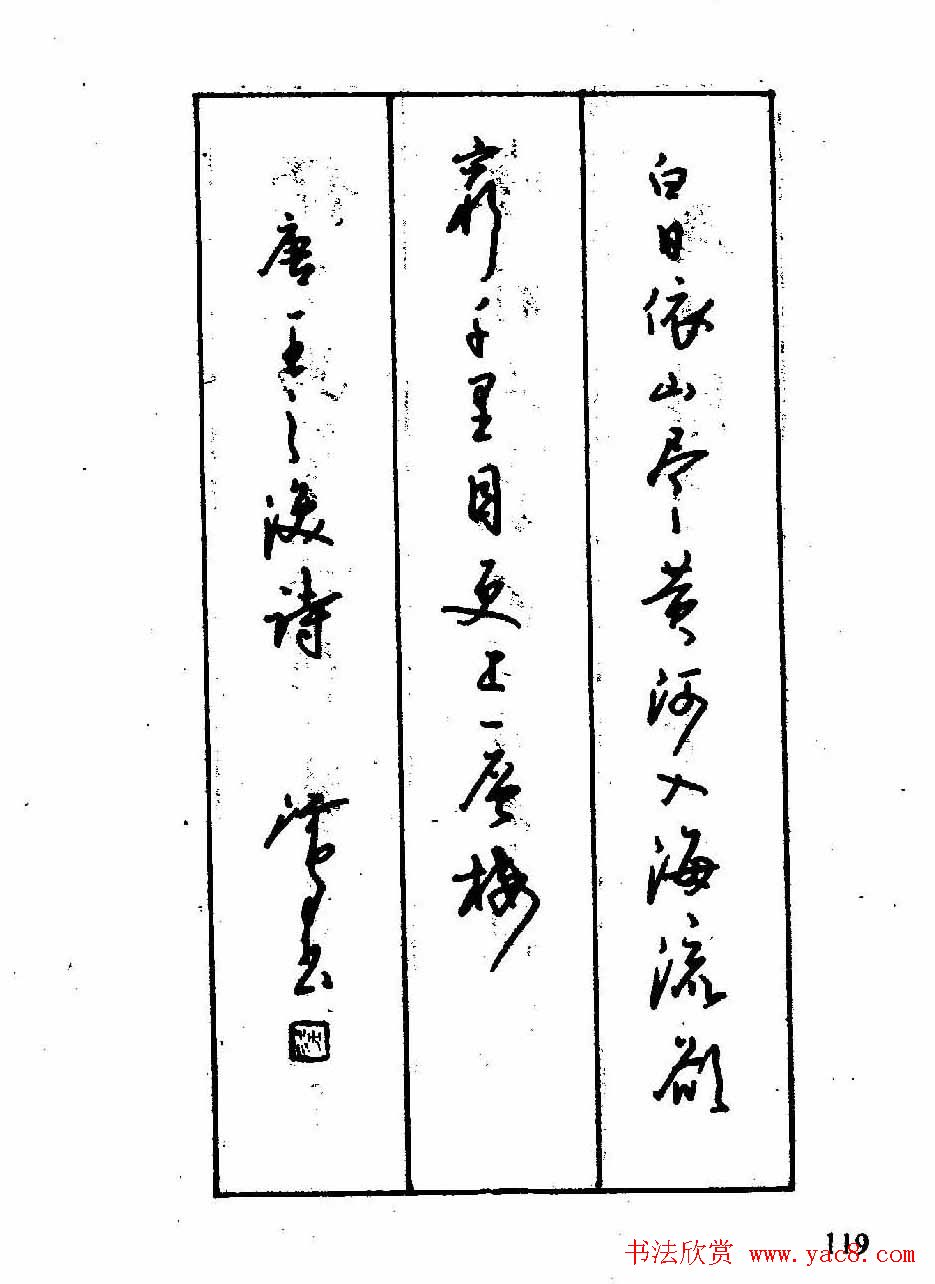 白日依山尽黄河入海流欲
穷千里目更上一层楼
唐王之涣诗
书
119
书法欣赏 www.yac8.com